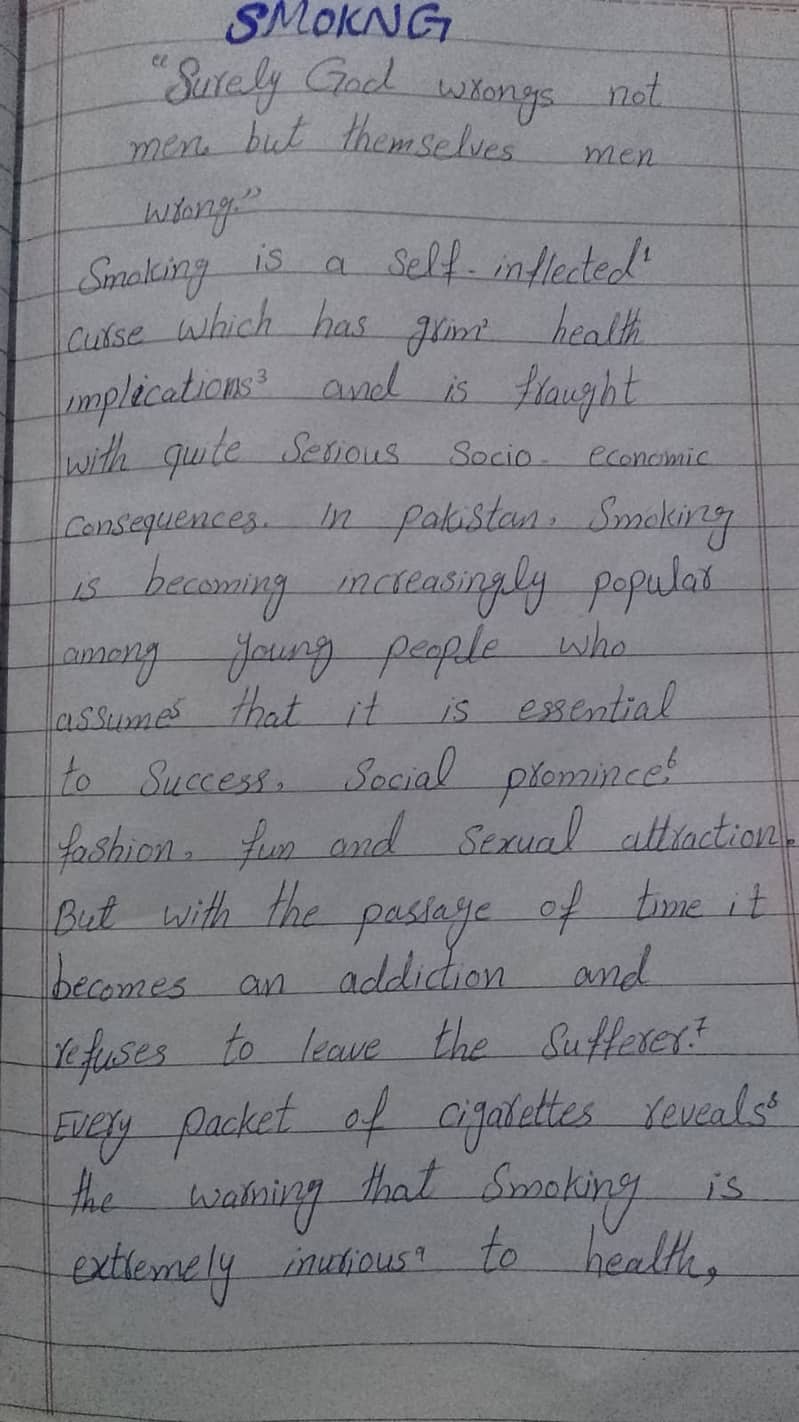 SMOKNG
"Surely God wrongs not
men but themselves men
wrong."
Smoking is a self-inflected¹
curse which has grim² health
implications³ and is fraught
with quite Serious Socio- economic
Consequences. In pakistan, Smoking
is becoming increasingly popular
among young people who
assume⁵ that it is essential
to Success, Social promince⁶,
fashion, fun and Sexual attraction.
But with the passage of time it
becomes an addiction and
refuses to leave the Sufferer.⁷
Every packet of cigarettes reveals⁸
the warning that Smoking is
extremely inurious⁹ to health,